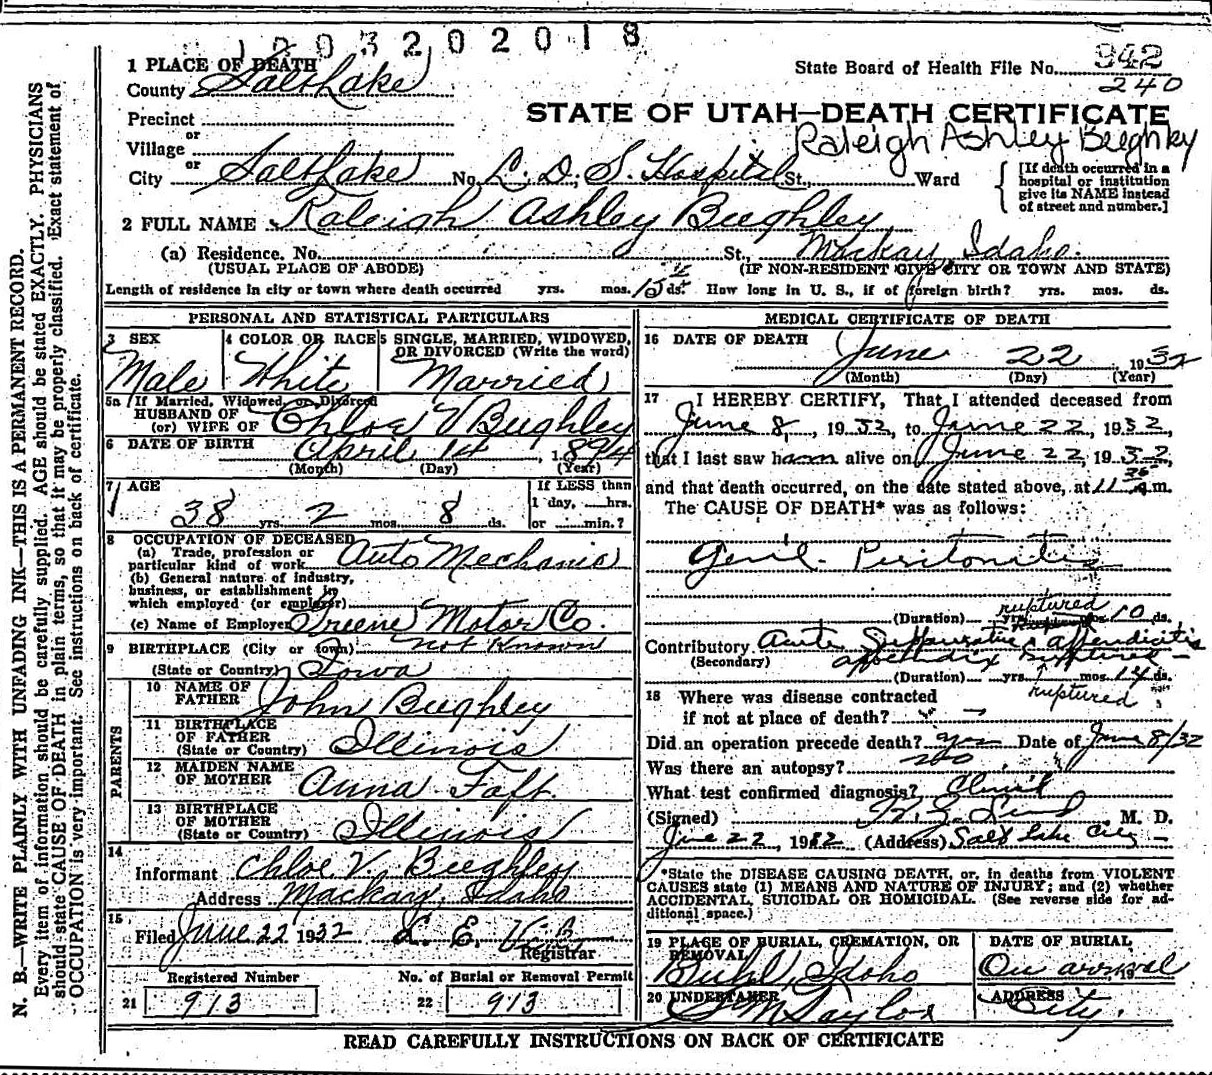 1003202018
1 PLACE OF DEATH
County Salt Lake
State Board of Health File No. 942
240
STATE OF UTAH—DEATH CERTIFICATE
Raleigh Ashley Beeghley
Precinct
or
Village
or
City Salt Lake No. L. D. S. Hospital St., Ward
[If death occurred in a hospital or institution give its NAME instead of street and number.]
2 FULL NAME Raleigh Ashley Beeghley
(a) Residence. No. St., Mackay, Idaho.
(USUAL PLACE OF ABODE) (IF NON-RESIDENT GIVE CITY OR TOWN AND STATE)
Length of residence in city or town where death occurred yrs. mos. ds. How long in U. S., if of foreign birth? yrs. mos. ds.
PERSONAL AND STATISTICAL PARTICULARS
3 SEX
Male
4 COLOR OR RACE
White
5 SINGLE, MARRIED, WIDOWED,
OR DIVORCED (Write the word)
Married
5a If Married, Widowed, or Divorced
HUSBAND OF
(or) WIFE OF Chloe V Beeghley
6 DATE OF BIRTH April 14, 1894
(Month) (Day) (Year)
7 AGE
38 yrs. 2 mos. 8 ds.
If LESS than
1 day, hrs.
or min.?
8 OCCUPATION OF DECEASED
(a) Trade, profession or
particular kind of work Auto Mechanic
(b) General nature of industry,
business, or establishment in
which employed (or employer)
(c) Name of Employer Greene Motor Co.
9 BIRTHPLACE (City or town) Not Known
(State or Country) Iowa
PARENTS
10 NAME OF
FATHER John Beeghley
11 BIRTHPLACE
OF FATHER
(State or Country) Illinois
12 MAIDEN NAME
OF MOTHER Anna Taft
13 BIRTHPLACE
OF MOTHER
(State or Country) Illinois
14
Informant Chloe V. Beeghley
Address Mackay, Idaho
15
Filed June 22 1932 L. E.
Registrar
Registered Number No. of Burial or Removal Permit
21 913 22 913
MEDICAL CERTIFICATE OF DEATH
16 DATE OF DEATH June 22 1932
(Month) (Day) (Year)
17 I HEREBY CERTIFY, That I attended deceased from
June 8, 1932, to June 22, 1932,
that I last saw him alive on June 22, 1932,
and that death occurred, on the date stated above, at 11 m.
The CAUSE OF DEATH* was as follows:
Gen'l. Peritonitis
ruptured
(Duration) yrs. 10 ds.
Contributory Acute Suppurative appendicitis
(Secondary) appendix ruptured —
(Duration) yrs. mos. 14 ds.
ruptured
18 Where was disease contracted
if not at place of death? —
Did an operation precede death? yes Date of June 8/32
Was there an autopsy? no
What test confirmed diagnosis?
(Signed) M. D.
June 22, 1932 (Address) Salt Lake City —
*State the DISEASE CAUSING DEATH, or, in deaths from VIOLENT
CAUSES state (1) MEANS AND NATURE OF INJURY; and (2) whether
ACCIDENTAL, SUICIDAL OR HOMICIDAL. (See reverse side for ad-
ditional space.)
19 PLACE OF BURIAL, CREMATION, OR
REMOVAL
Buhl, Idaho
DATE OF BURIAL,
On arrival 19
20 UNDERTAKER
S M Taylor
ADDRESS
City.
READ CAREFULLY INSTRUCTIONS ON BACK OF CERTIFICATE
N. B.—WRITE PLAINLY WITH UNFADING INK—THIS IS A PERMANENT RECORD.
Every item of information should be carefully supplied. AGE should be stated EXACTLY. PHYSICIANS
should state CAUSE OF DEATH in plain terms, so that it may be properly classified. Exact statement of
OCCUPATION is very important. See instructions on back of certificate.